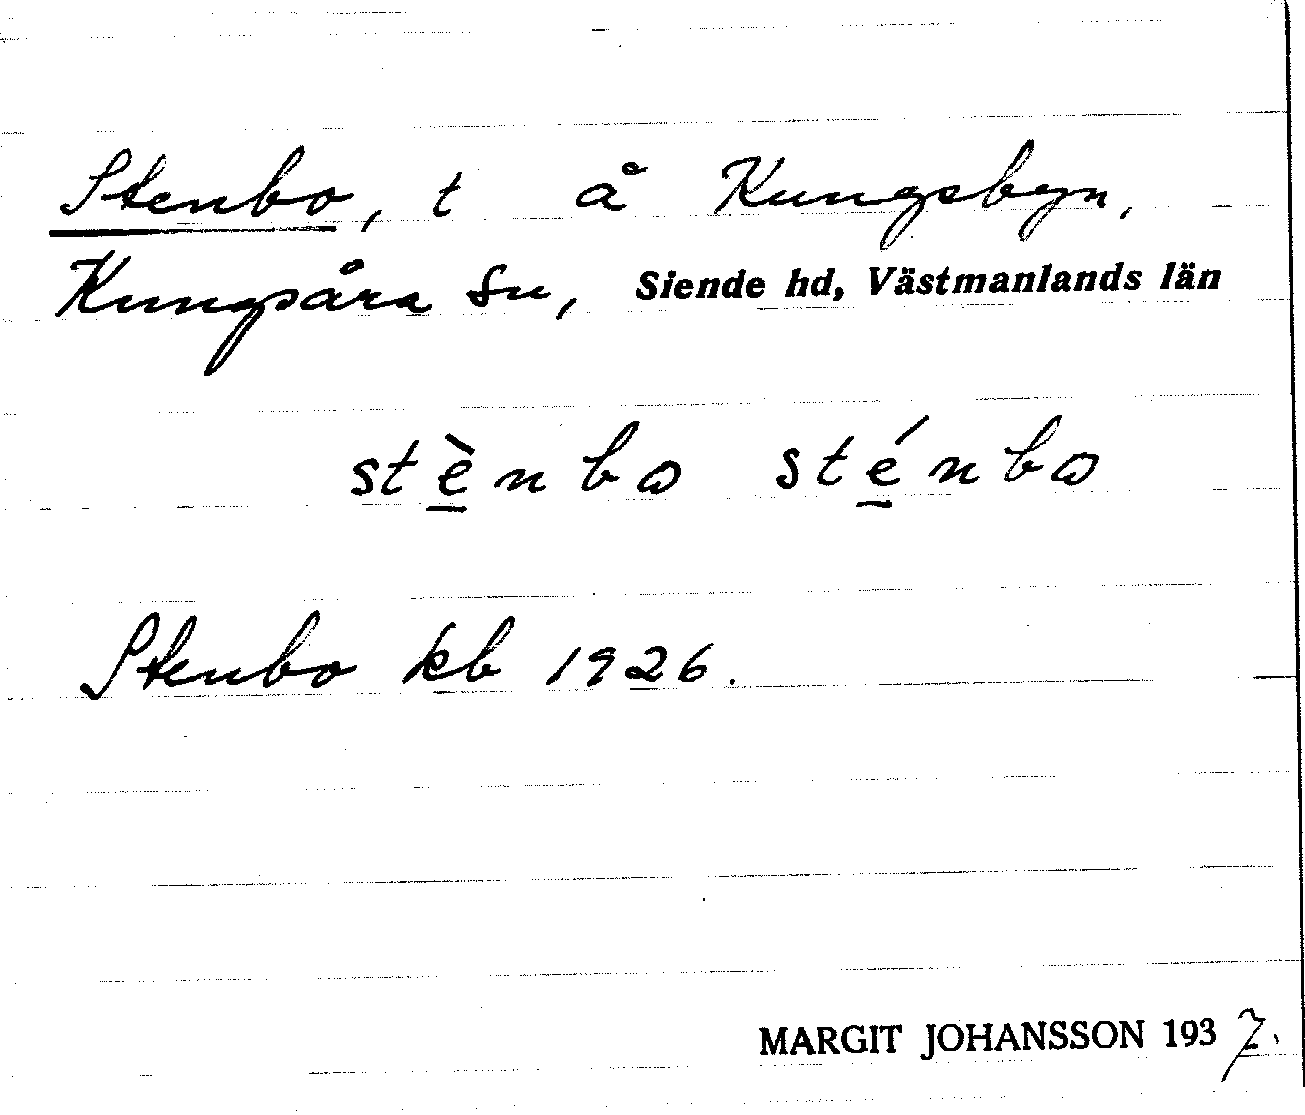 Stenbo, t å Kungsbyn,
Kungsåra sn, Siende hd, Västmanlands län
stè̲nbω sté̲nbω
Stenbo kb 1926.
MARGIT JOHANSSON 1937.